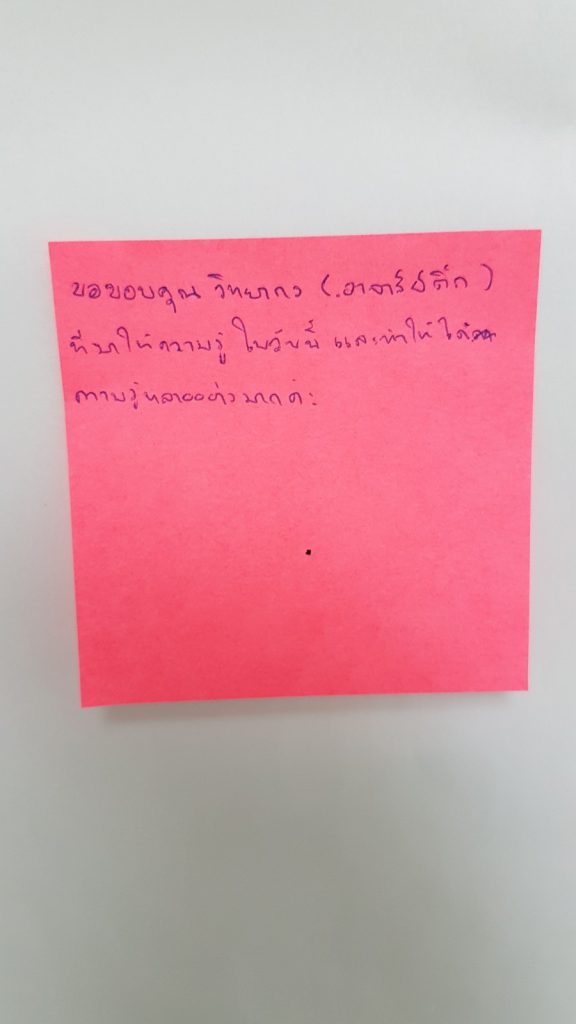 ขอขอบคุณ วิทยากร (อาจารย์ติ๊ก)
ที่มาให้ความรู้ ในวันนี้ และทำให้ได้
ความรู้หลายอย่างมากค่ะ